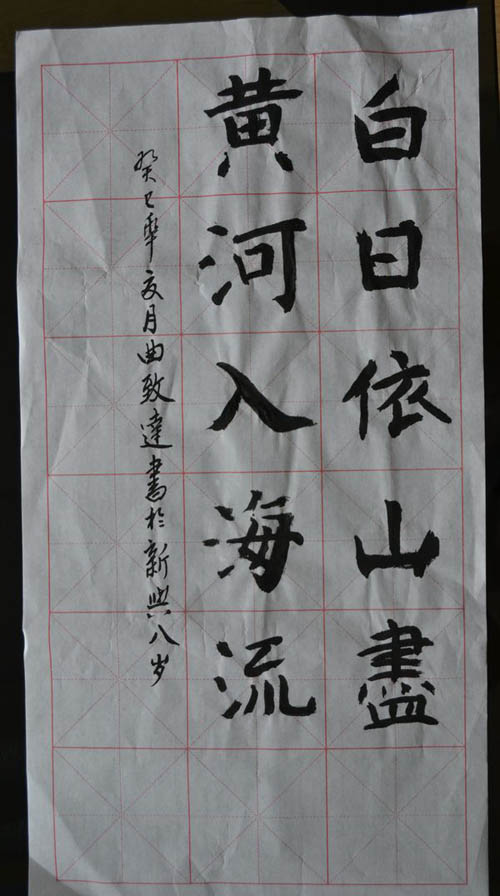 白日依山盡
黄河入海流
癸巳年亥月曲敦達書於新兴八岁